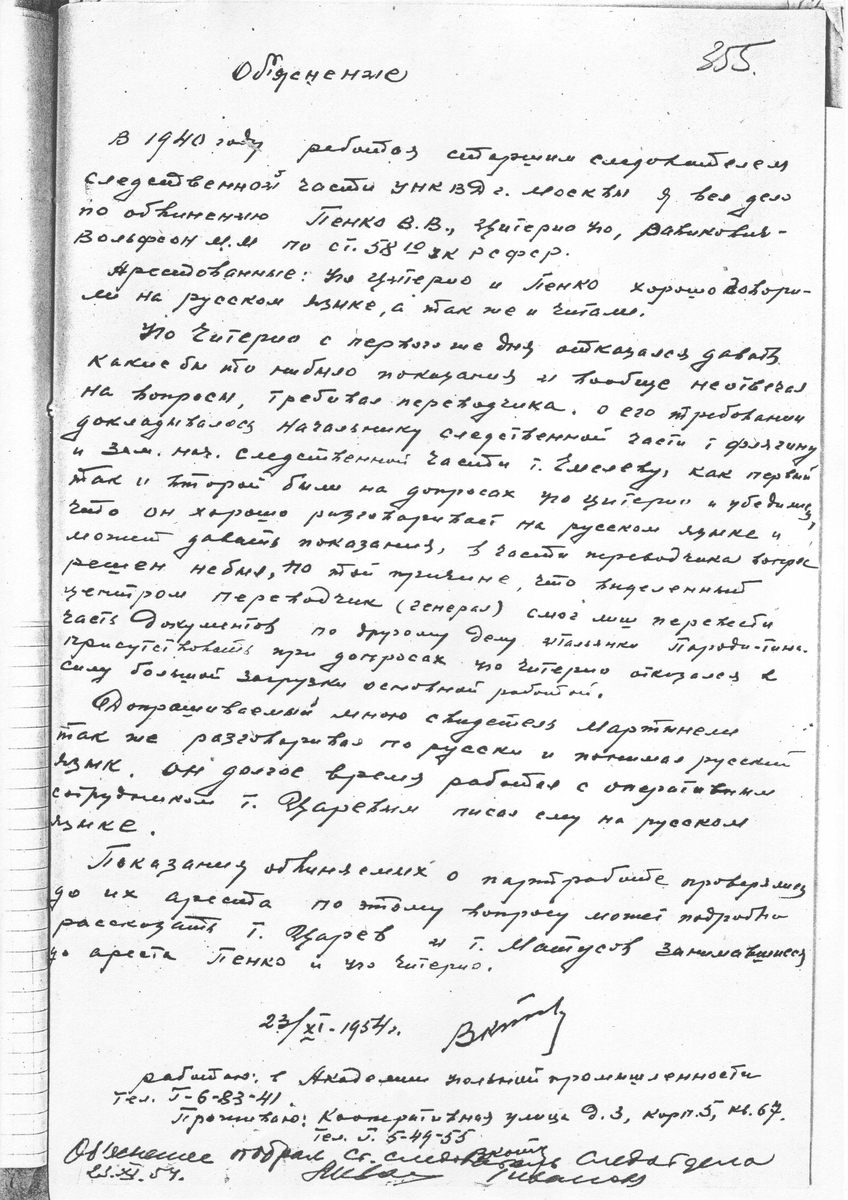 355.
Объяснение
В 1940 году работая старшим следователем
следственной части УНКВД г. Москвы я вел дело
по обвинению Пенко В.В., Цитерио Уго, Вавикович-
Вольфсон М.М по ст. 58 10 УК РСФСР.
Арестованные: Уго Цитерио и Пенко хорошо говори-
ли на русском языке, а так же и читали.
Уго Читерио с первого же дня отказался давать
какие бы то нибыло показания и вообще неотвечал
на вопросы, требовал переводчика. О его требовании
докладывалось начальнику следственной части т Флягину
и зам. нач. следственной части т. Емелеву, как первый
так и второй были на допросах Уго Цитерио и убедились,
что он хорошо разговаривает на русском языке и
может давать показания, в части переводчика вопрос
решен небыл, по той причине, что выделенный
центром переводчик (генерал) смог лиш перевести
часть документов по другому делу итальянки Пароди-Тина.
присутствовать при допросах Уго Читерио отказался в
силу большой загрузки основной работой.
Допрашиваемый мною свидетель Мартинели
так же разговаривал по русски и понимал русский
язык. Он долгое время работал с оперативным
сотрудником т. Царевым писал ему на русском
языке.
Показания обвиняемых о партработе проверялись
до их ареста по этому вопросу может подробно
рассказать т. Царев и т. Матусов занимавшиеся
до ареста Пенко и Уго Читерио.
23/XI-1954 г.
работаю: в Академии угольной промышленности
тел. Г-6-83-41.
Проживаю: Кооперативная улица д. 3, корп. 5, кв. 67.
тел. Г. 5-49-55
Объяснение отобрал ст. следователь следотдела
23.XI.54.